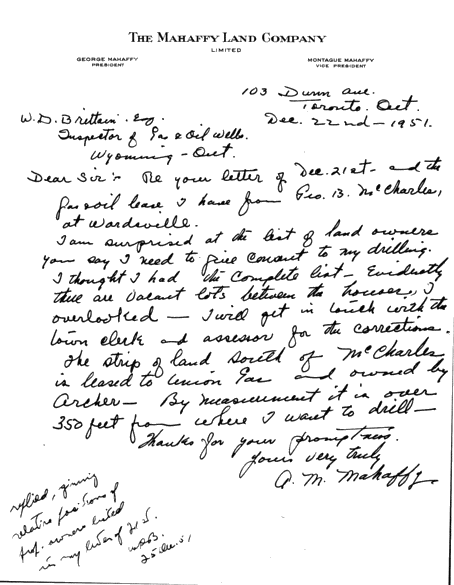 THE MAHAFFY LAND COMPANY
LIMITED
GEORGE MAHAFFY
PRESIDENT
MONTAGUE MAHAFFY
VICE PRESIDENT
103 Dunn Ave.
Toronto. Ont.
Dec. 22nd - 1951.
W.D. Brittain. Esq.
Inspector of Gas & Oil Wells.
Wyoming - Ont.
Dear Sir:- Re your letter of Dec. 21st - and the
gas & oil lease I have from Geo. B. McCharles,
at Wardsville.
I am surprised at the list of land owners
you say I need to give consent to my drilling.
I thought I had the complete list - Evidently
there are vacant lots between the houses, I
overlooked - I will get in touch with the
town clerk and assessor for the corrections.
The strip of land South of McCharles
is leased to Union Gas and owned by
Archer - By measurement it is over
350 feet from where I want to drill -
Thanks for your promptness.
Yours very truly
A. M. Mahaffy.
replied, giving
relative positions of
prop. owners listed
in my letter of 21st.
WDB.
25 Dec. 51